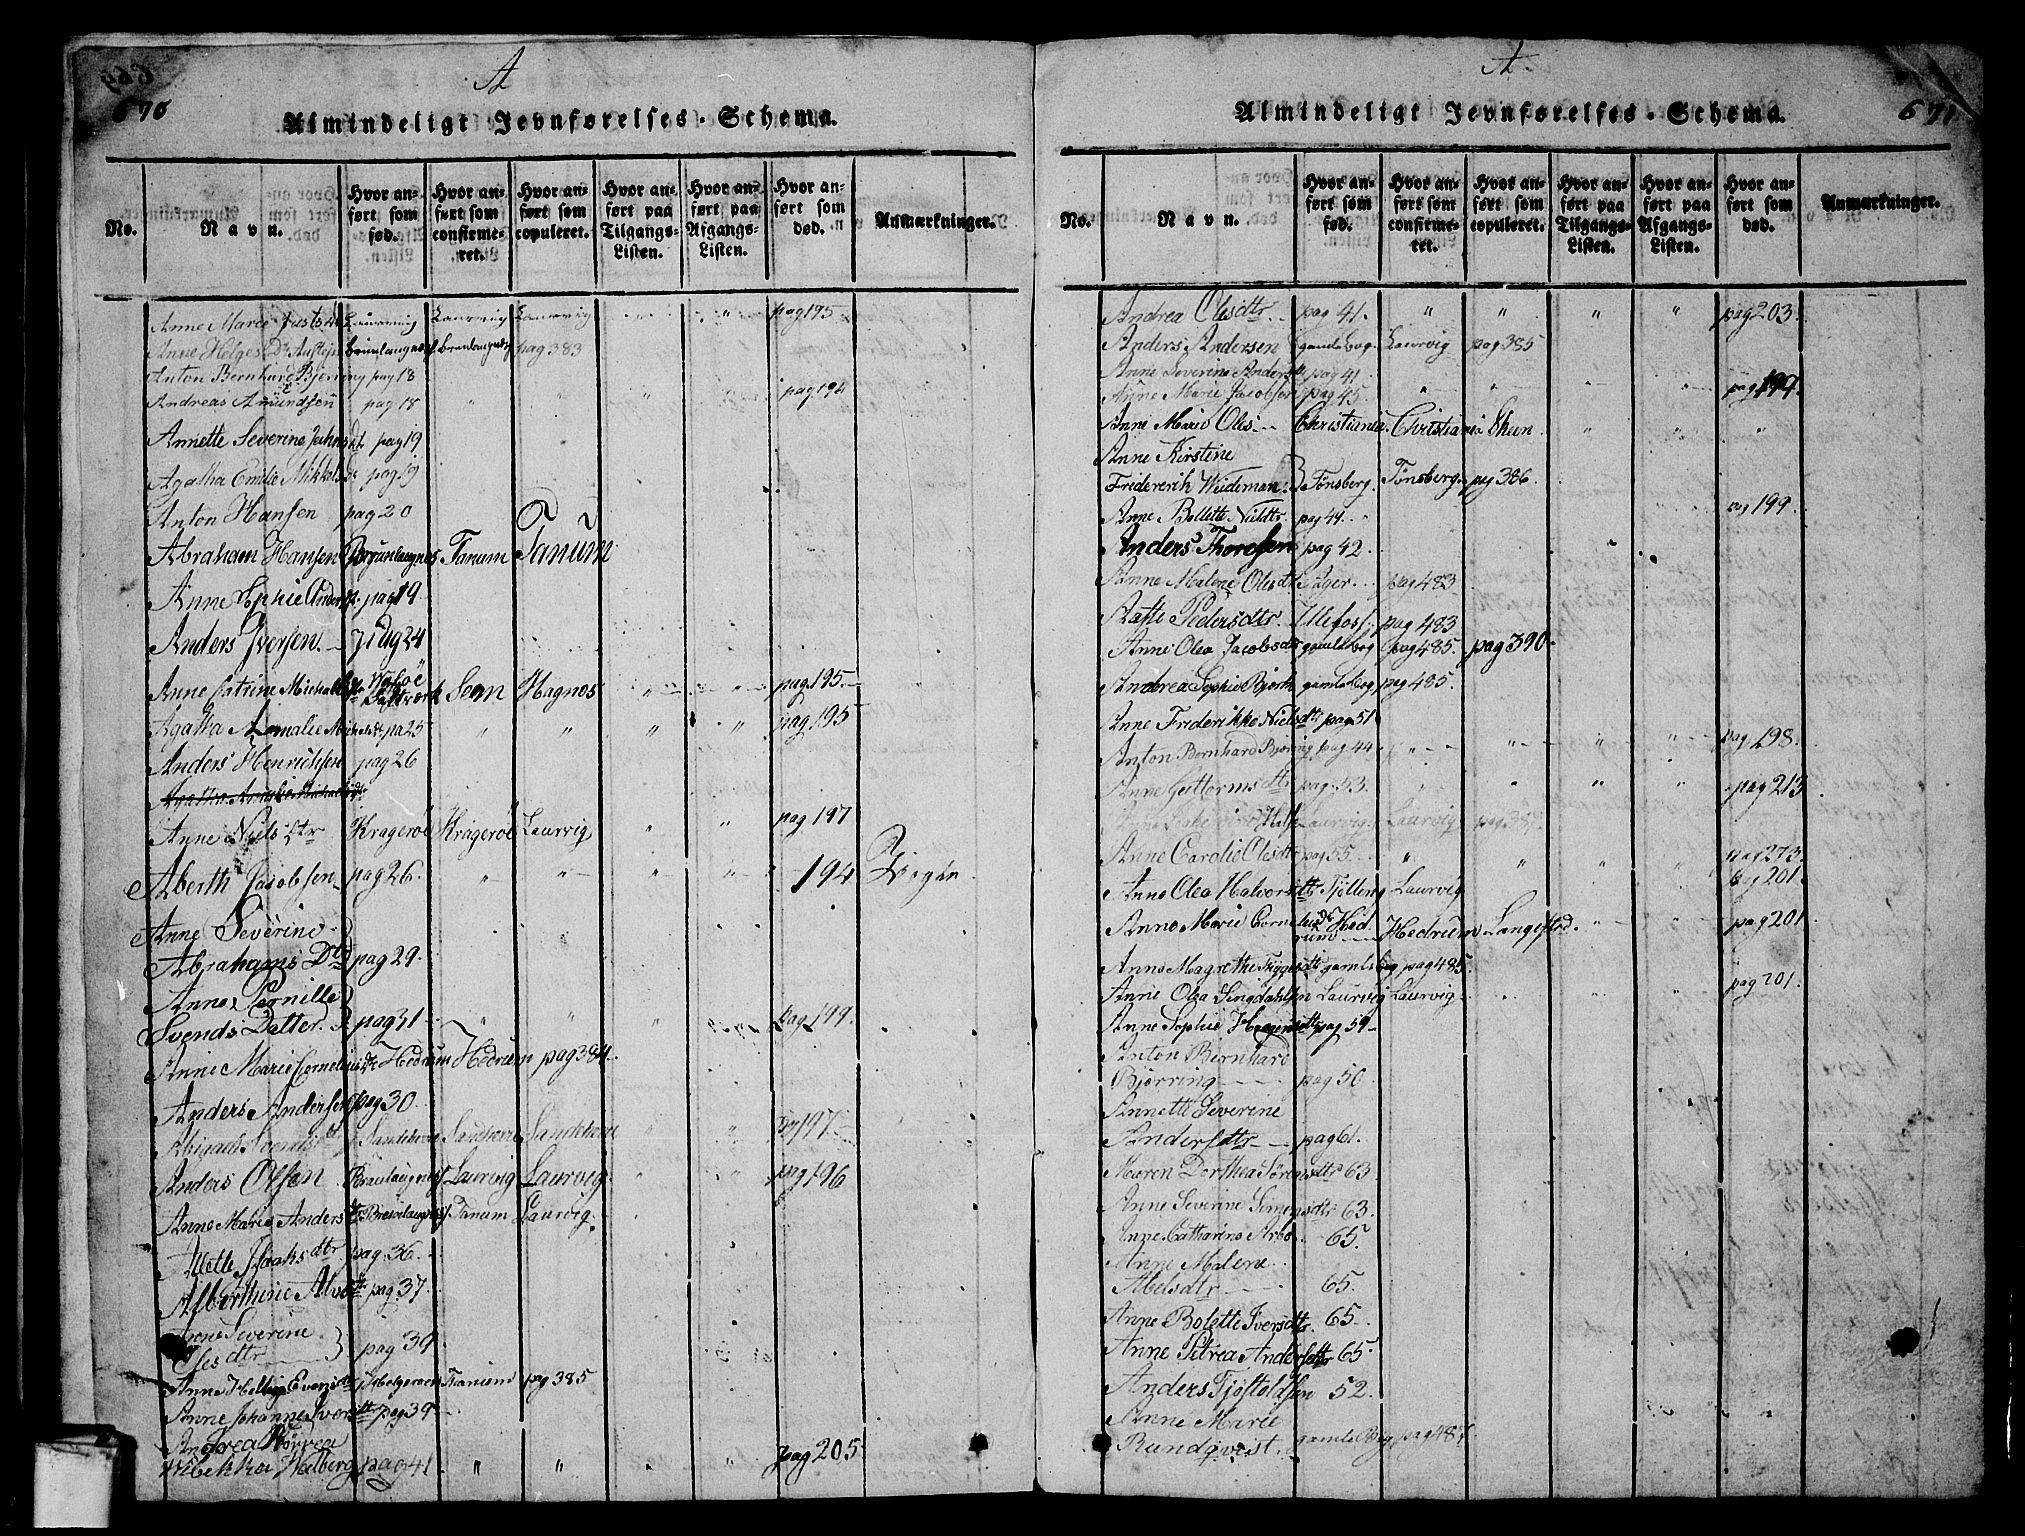 A
670
Almindeligt Jevnførelses-Schema.
No. Navn. Hvor anført som fød. Hvor anført som confirmeret. Hvor anført som copuleret. Hvor anført paa Tilgangs-Listen. Hvor anført paa Afgangs-Listen. Hvor anført som død. Anmærkninger.
Anne Marie Laurvig Laurvig Laurvig pag 195
Anne Helges Dr pag 383
Anton Bernhard Bjerring pag 18
Andreas Amundsen pag 18 pag 194
Annette Severine Johns dt pag 19
Agatha Emilie Mikkels dr pag 19
Anton Hansen pag 20
Abraham Hansen Brunlaugnes Tanum Tanum
Anne Sophie Anders pag 19
Anders Iversen pag 24
Anne Catrine Michaels Walløe Saltværk Sem Hagnes pag 195
Agatha Amalie Michelsdt pa 25 " " " " pag 195
Anders Henrichsen pag 26
Agatha Amalie Michaelsdt
Anne Niels dtr Kragerøe Kragerøe Laurvig " " pag 197
Aberth Jacobsen pag 26 " " " " 194
Anne Severine
Abrahams Dtr pag 29
Anne Pernille
Svends Datter pag 31 pag 199
Anne Marie Cornelius dtr Hedrum Hedrum pag 384
Anders Andersen pag 30
Abigael Svends dtr Sandeherre Sandherre Sandeherre 197
Anders Olsen Brunlaugnes Laurvig Laurvig pag 196
Anne Marie Anders dtr Brunlaugnes Tanum Laurvig
Mette Isaaks dtr pag 36
Alberthine pag 37
Anne Severine
dtr pag 39
Anne Helvig Evens dtr Helgeraen Tanum pag 385
Anne Johanne Ivers dtr pag 39
Andrea Børrea
Wibekka Walberg pag 41 " " " " pag 205
A.
671
Almindeligt Jevnførelses-Schema.
No. Navn. Hvor anført som fød. Hvor anført som confirmeret. Hvor anført som copuleret. Hvor anført paa Tilgangs-Listen. Hvor anført paa Afgangs-Listen. Hvor anført som død. Anmærkninger.
Andrea Olesdtr pag 41 " " " " pag 203
Anders Andersen gamle bog Laurvig pag 385
Anne Severine Andersdtr pag 41
Anne Marie Jacobsen pag 45 " " " " pag 199
Anne Marie Oles Christiania Christiania Skeen " " "
Anne Kirstine
Friderich Weideman Tønsberg Tønsberg pag 386
Anne Bollette Nieldtr pag 44 pag 199
Anders Thoresen pag 42
Anne Malene Olesdtr pag 483
Pedersdtr Ulefoss pag 483
Anne Olea Jacobsdtr gamle bog pag 485 pag 390
Andrea Sophie Bjørk gamle bog pag 485
Anne Friderikke Nielsdtr pag 51
Anton Bernhard Bjørring pag 44 " " " " pag 198
Anne Guttorms dtr pag 53 " " " " pag 213
Anne Laurvig Laurvig
Anne Carolie Olesdtr pag 55 " " " " pag 273
Anne Olea Halvorsdtr Tjølling Laurvig pag 201
Anne Marie Cornelius dtr Hedrum Hedrum Langestrd pag 201
Anne Magrethe Trygesdtr gamle bog pag 485
Anne Olea Singdahlsen Laurvig Laurvig pag 201
Anne Sophie Haagensdtr pag 59
Anton Bernhard
Bjørring pag 50
Annette Severine
Andersdtr pag 61
Maren Dorthea Sørensdtr 63
Anne Severine Simensdtr 63
Anne Catharine Arbo 65
Anne Malene
Abelsdtr 65
Anne Bolette Iversdtr 65
Anne Petrea Andersdtr 65
Anders Tjøstolfsen 52
Anne Marie
Rundqvist gamle Bog pag 487